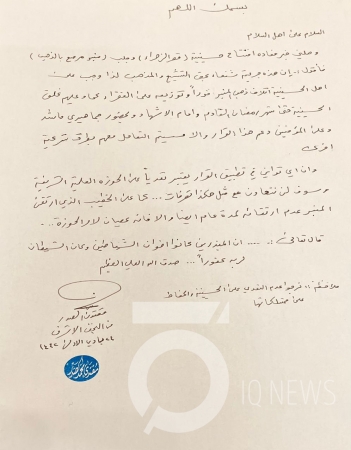 بسمك اللهم
السلام على اهل السلام
وصلني خبر مفاده افتتاح حسينية (قصر الزهراء) وجلب (منبر مرصع بالذهب)
فأقول: ان هذه جريمة شنعاء بحق التشيع والمذهب لذا وجب على
اهل الحسينية اتلاف ذهب المنبر فوراً وتوزيعه على الفقراء كما وعليهم غلق
الحسينية حتى شهر رمضان القادم وأمام الاشهاد وبحضور جماهيري حاشد
وعلى المؤمنين دعم هذا القرار والا فسيتم التعامل معهم بطرق شرعية
اخرى
وان اي تواني في تطبيق القرار يعتبر تعدياً على الحوزة العلمية الشريفة
وسوف لن نتهاون مع مثل هكذا تصرفات... كما على الخطيب الذي ارتقى
المنبر عدم ارتقائه لمدة عام ايضاً والا فانه عصيان لأمر الحوزة...
قال تعالى: .... ان المبذرين كانوا اخوان الشياطين وكان الشيطان
لربه كفوراً... صدق الله العلي العظيم
ملاحظة: نرجو عدم التعدي على الحسينية والحفاظ
على ممتلكاتها
مقتدى الصدر
من النجف الاشرف
جمادي الاول ١٤٤٢
IQ NEWS